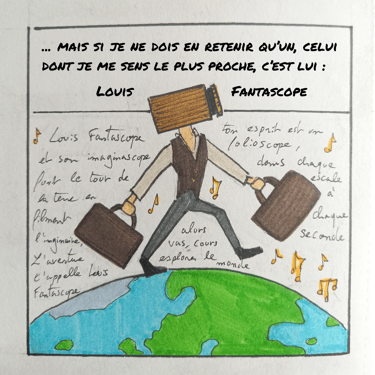 ... MAIS SI JE NE DOIS EN RETENIR QU'UN, CELUI
DONT JE ME SENS LE PLUS PROCHE, C'EST LUI :
LOUIS FANTASCOPE
Louis Fantascope
et son imaginascope
font le tour de
la terre en
filmant
l'imaginaire,
L'aventure
t'appelle Louis
Fantascope
alors
vas, cours
explorer le
monde
ton esprit est un
folioscope,
dans chaque
escale
à
chaque
seconde